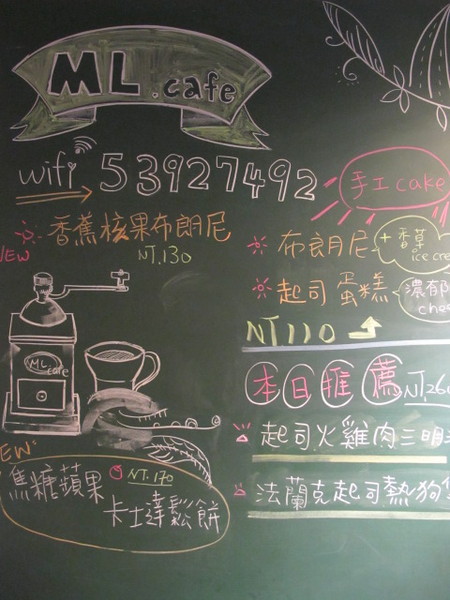 ML.cafe
wifi 53927492
手工cake
NEW 香蕉核果布朗尼
NT.130
布朗尼 + 香草
ice cre
起司蛋糕 濃郁
chee
NT110
ML cafe
本日推薦 NT.260
起司火雞肉三明
法蘭克起司熱狗
NEW
焦糖蘋果 NT.170
卡士達鬆餅